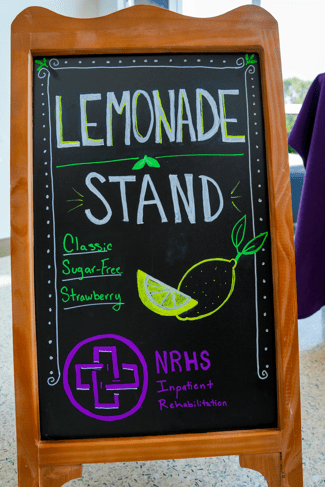 LEMONADE
STAND
Classic
Sugar-Free
Strawberry
NRHS
Inpatient
Rehabilitation